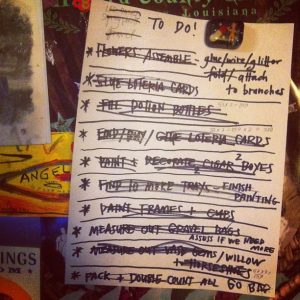 Louisiana
TO DO!
* FLOWERS ASSEMBLE - glue/wire/glitter
fold/attach
to branches
* GLUE LOTERIA CARDS
* FILL POTION BOTTLES
* FIND/BUY/GLUE LOTERIA CARDS
* PAINT + DECORATE CIGAR BOXES
* FIND 10 MORE TRAYS - FINISH
PAINTING
* PAINT FRAMES + CUPS
* MEASURE OUT GRAVEL BAGS
ASSESS IF WE NEED
MORE
* MEASURE OUT GEMS/WILLOW
+ HORSE
* PACK + DOUBLE COUNT ALL
ANGEL
INGS
OM